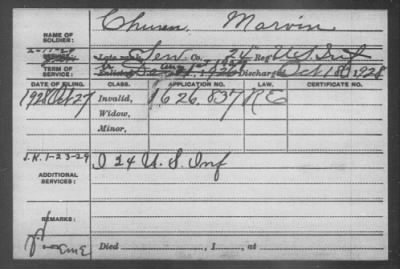 NAME OF SOLDIER: Marvin
Sen Co. 24" Reg U.S. Inf
TERM OF SERVICE: Discharged Oct 18, 1928
DATE OF FILING. CLASS. APPLICATION NO. LAW. CERTIFICATE NO.
1928 Oct 27 Invalid, 1626,837 RE
Widow,
Minor,
S.K. 1-23-29 D 24 U.S. Inf
ADDITIONAL SERVICES:
REMARKS:
Died , 1 , at